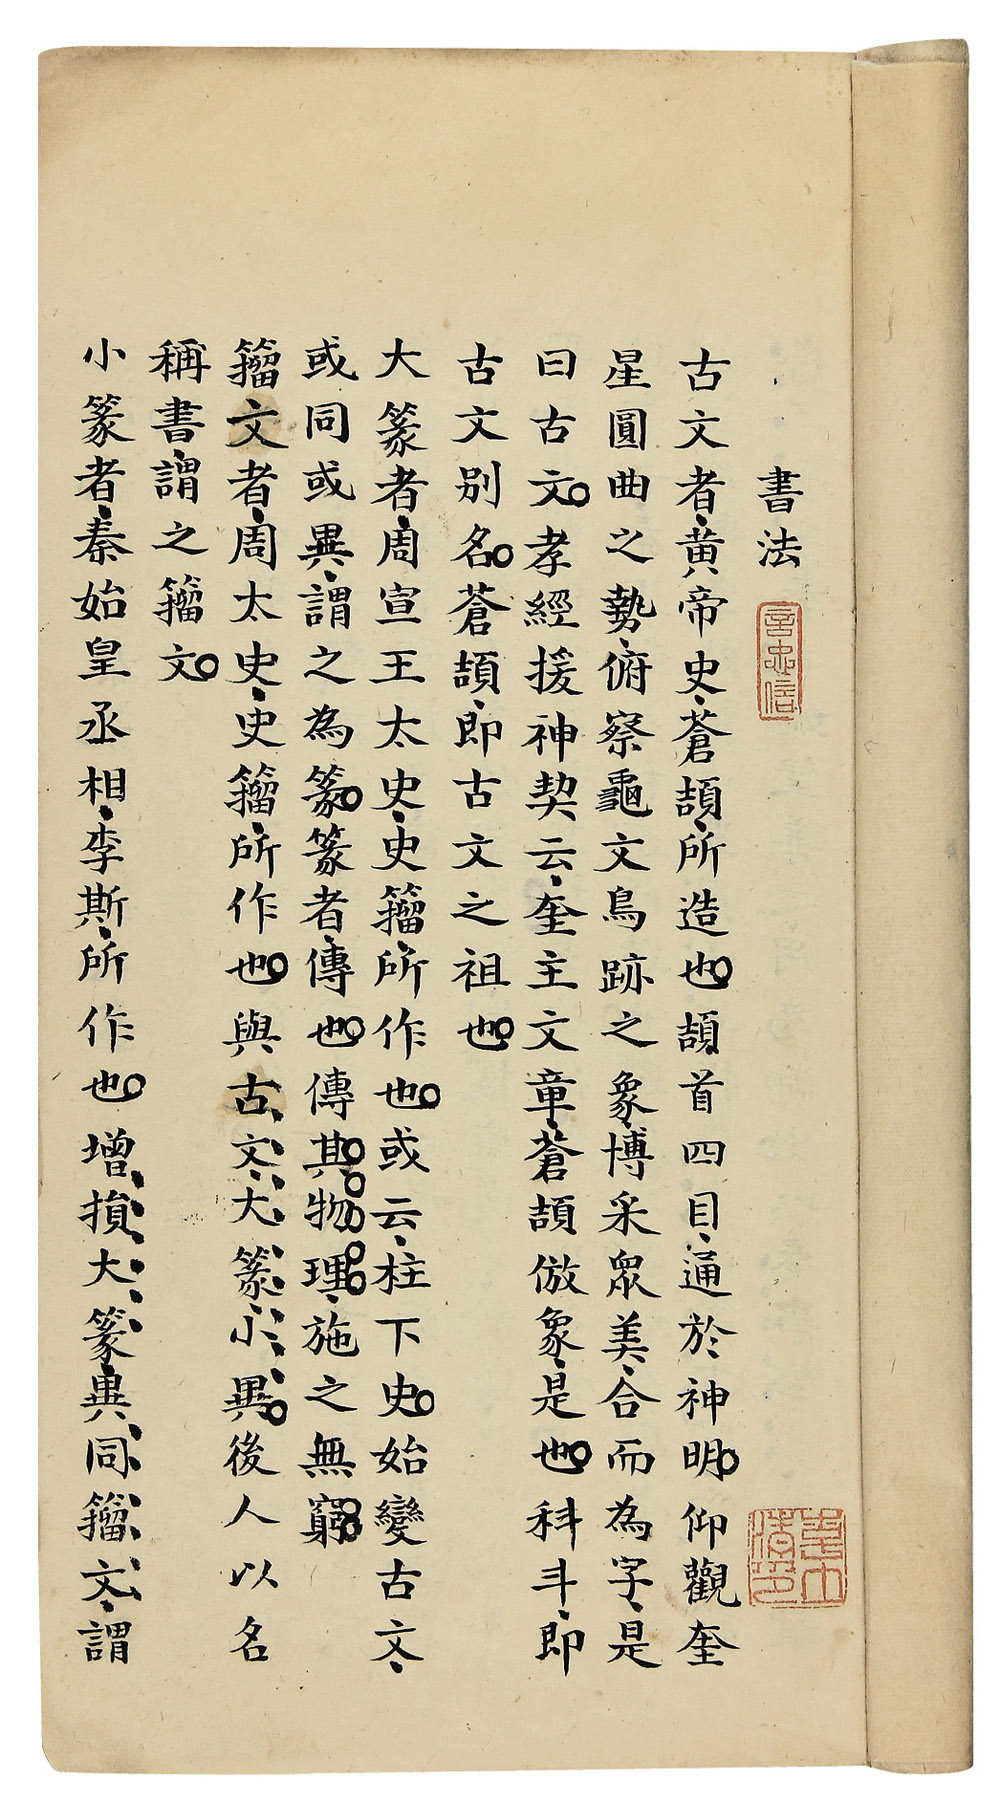 書法
言忠信
古文者黃帝史蒼頡所造也頡首四目通於神明仰觀奎
星圓曲之勢俯察龜文鳥跡之象博采眾美合而為字是
曰古文孝經援神契云奎主文章蒼頡倣象是也科斗即
古文別名蒼頡即古文之祖也
大篆者周宣王太史史籀所作也或云柱下史始變古文
或同或異謂之為篆篆者傳也傳其物理施之無窮
籀文者周太史史籀所作也與古文大篆小異後人以名
稱書謂之籀文
小篆者秦始皇丞相李斯所作也增損大篆異同籀文謂